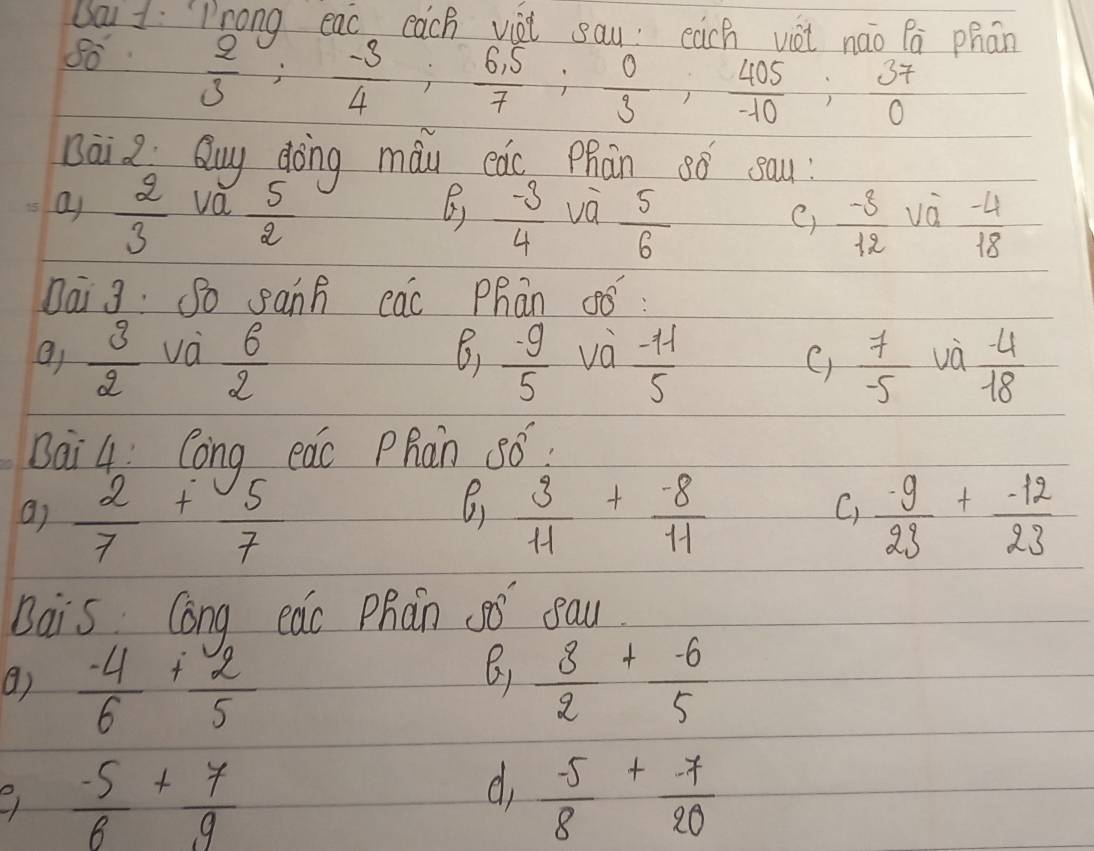 Bài 1: Trong các cách viết sau: cách viết nào là phân
số: 2/3 ; -3/4 ; 6,5/7 ; 0/3 ; 405/-10 ; 37/0
Bài 2: Quy đồng mẫu các phân số sau:
a, 2/3 và 5/2 b, -3/4 và 5/6 c, -3/12 và -4/18
Bài 3: So sánh các phân số:
a, 3/2 và 6/2 b, -9/5 và -11/5 c, 7/-5 và -4/18
Bài 4: Cộng các phân số:
a) 2/7 + 5/7 b, 3/11 + -8/11 c, -9/23 + -12/23
Bài 5: Cộng các phân số sau
a) -4/6 + 2/5 b, 3/2 + -6/5
c, -5/6 + 7/9 d, -5/8 + -7/20